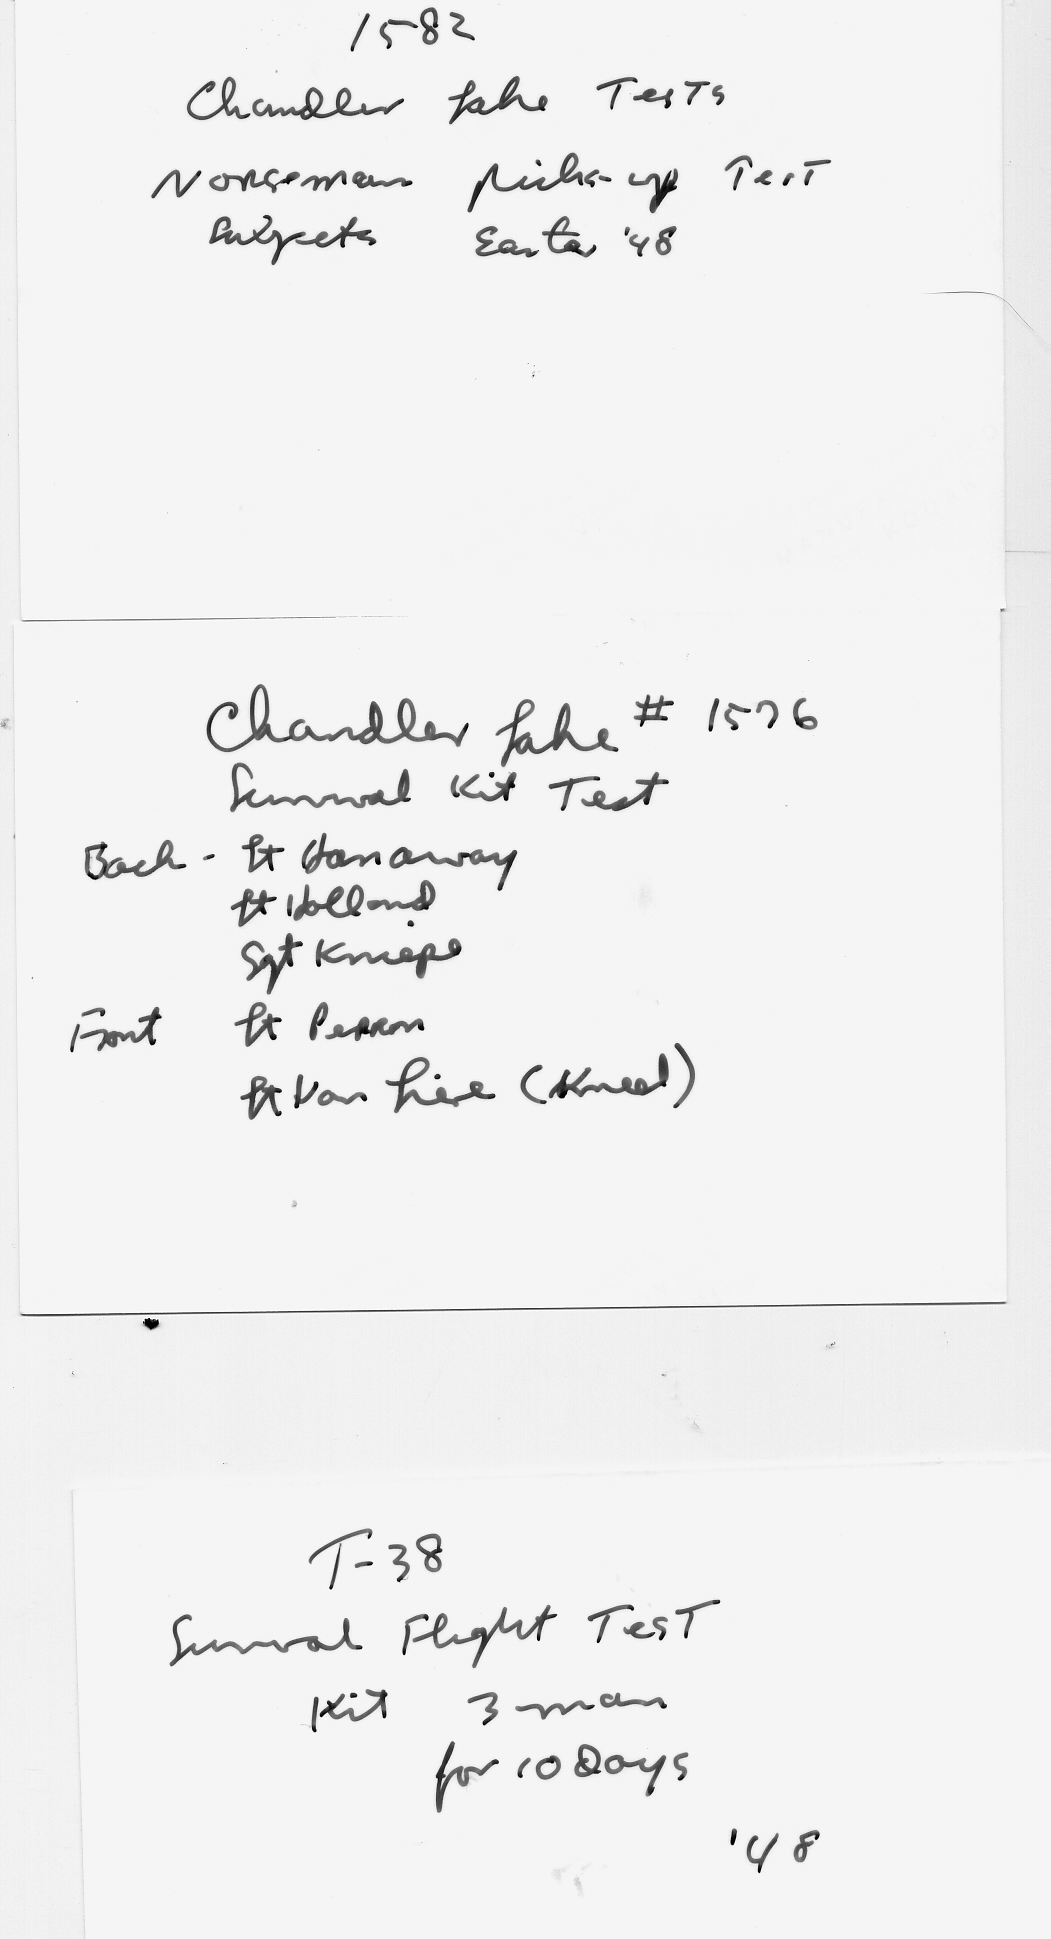 1582
Chandler Lake Tests
Norseman Pick-up Test
Subjects Easter '48
Chandler Lake # 1576
Survival Kit Test
Back - Lt Hanaway
Lt Holland
Sgt Kniepe
Front Lt Perron
Lt Van Lire (Kneel)
T-38
Survival Flight Test
Kit 3 man
for 10 Days
'48